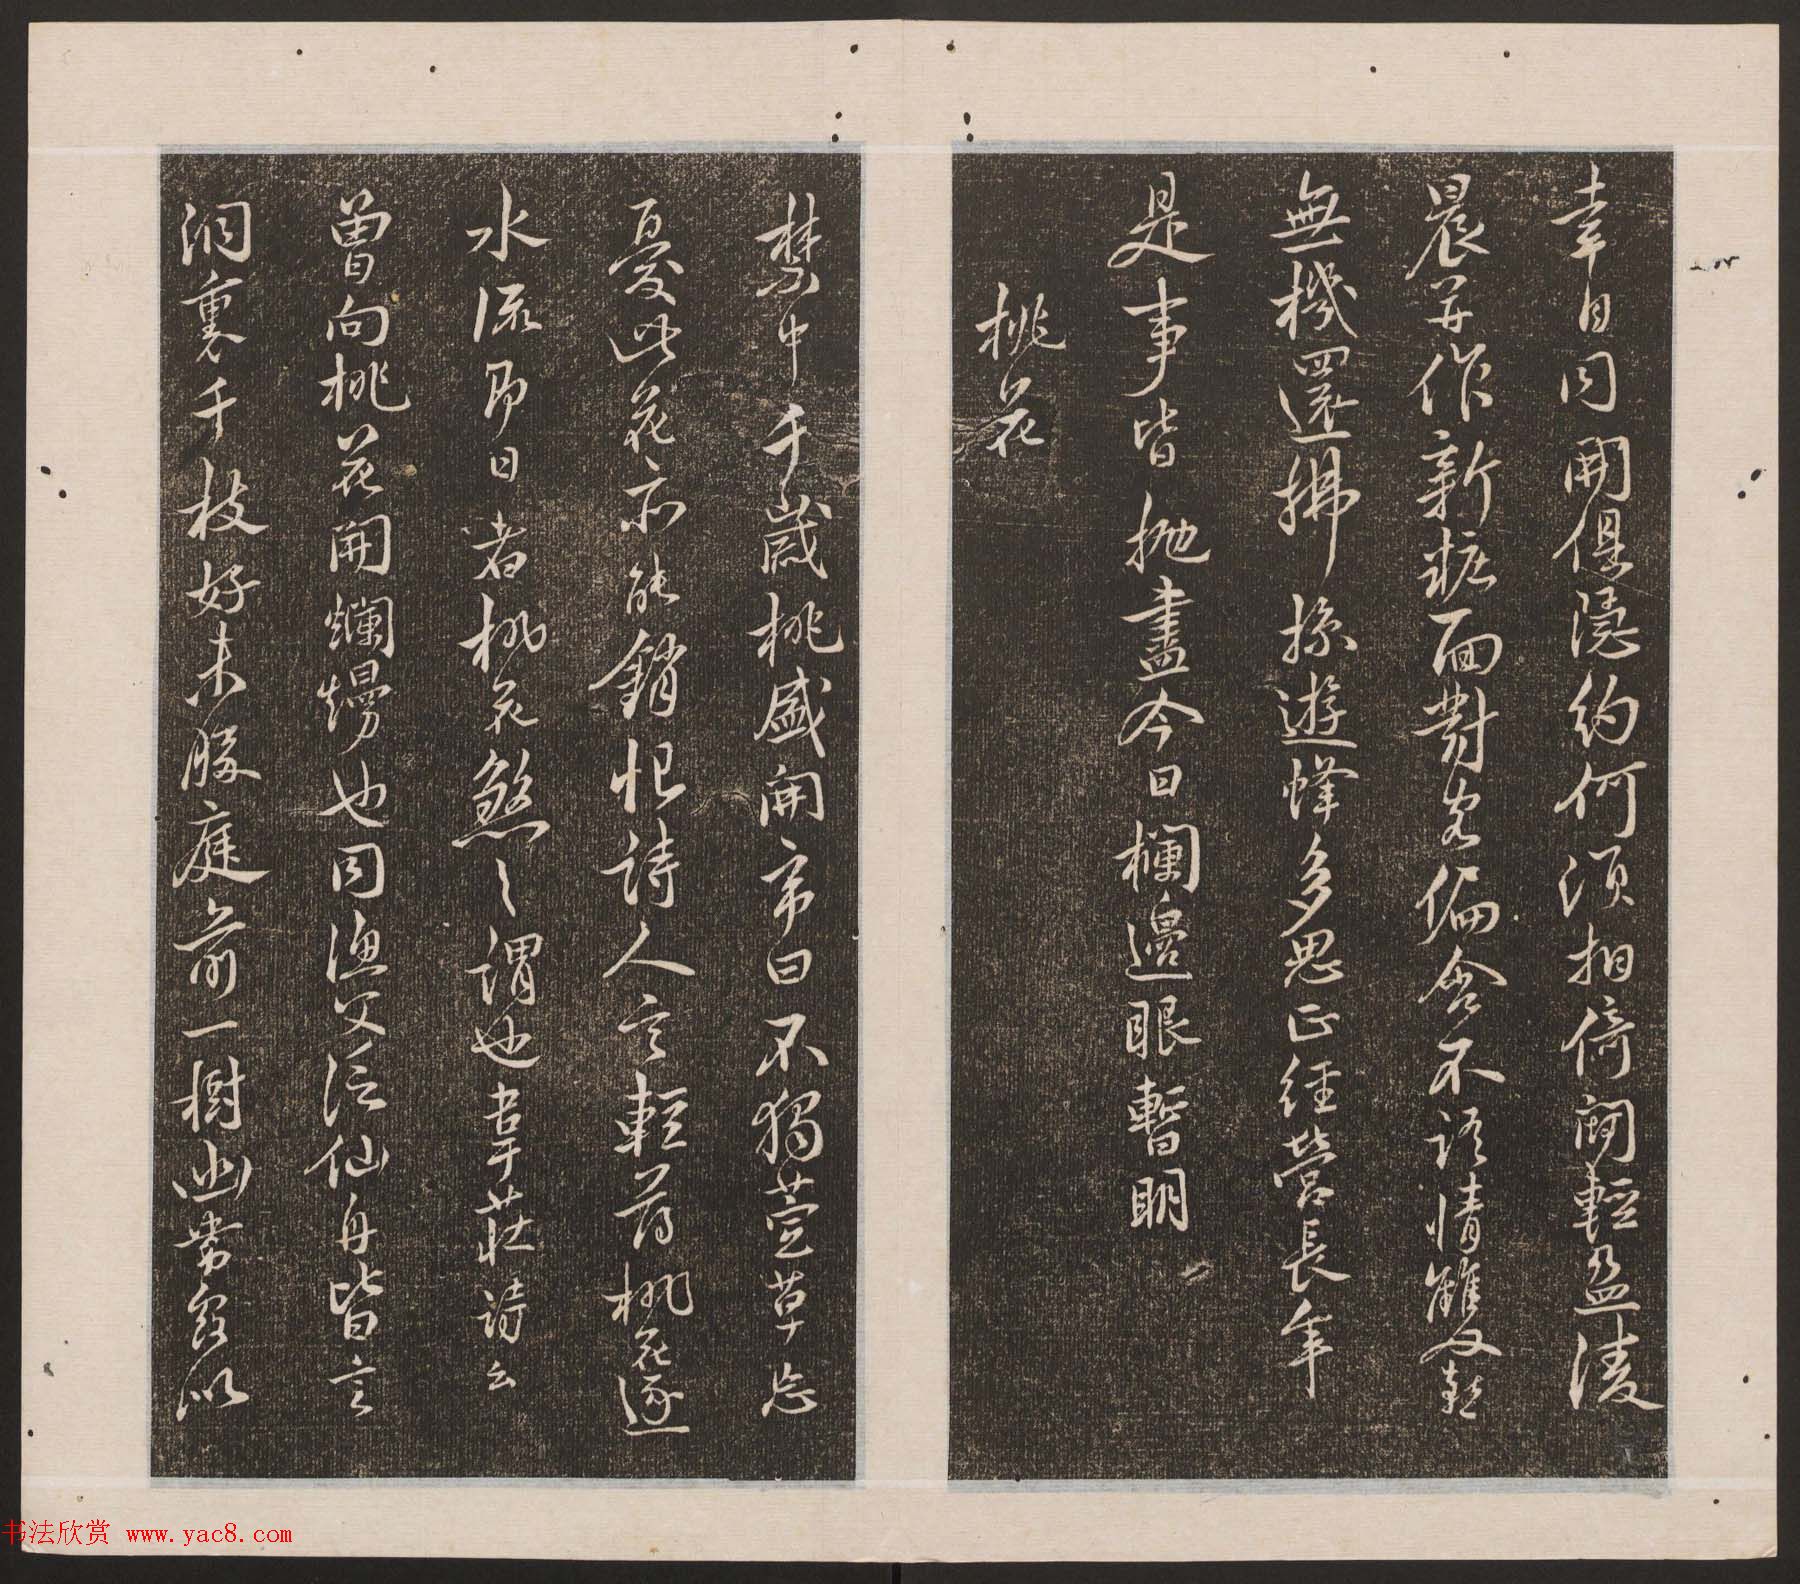 幸自同開俱隱約何須相倚鬪輕盈淩
晨并作新粧面對客偏含不語情雙燕
無機還拂掠遊蜂多思正經營長年
是事皆抛盡今日欄邊眼暫明
桃花
禁中千歲桃盛開帝曰不獨萱草忘
憂此花亦能銷恨詩人言輕薄桃花逐
水流即日者桃花煞之謂也韋莊詩云
曾向桃花開爛熳也同漁父泛仙舟皆言
洞裏千枝好未勝庭前一樹幽當綴以
书法欣赏 www.yac8.com